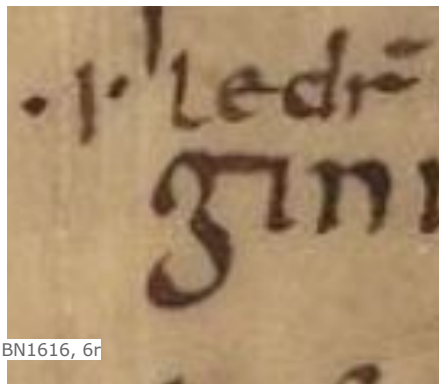 ·ı· ledr̄
gınn
BN1616, 6r